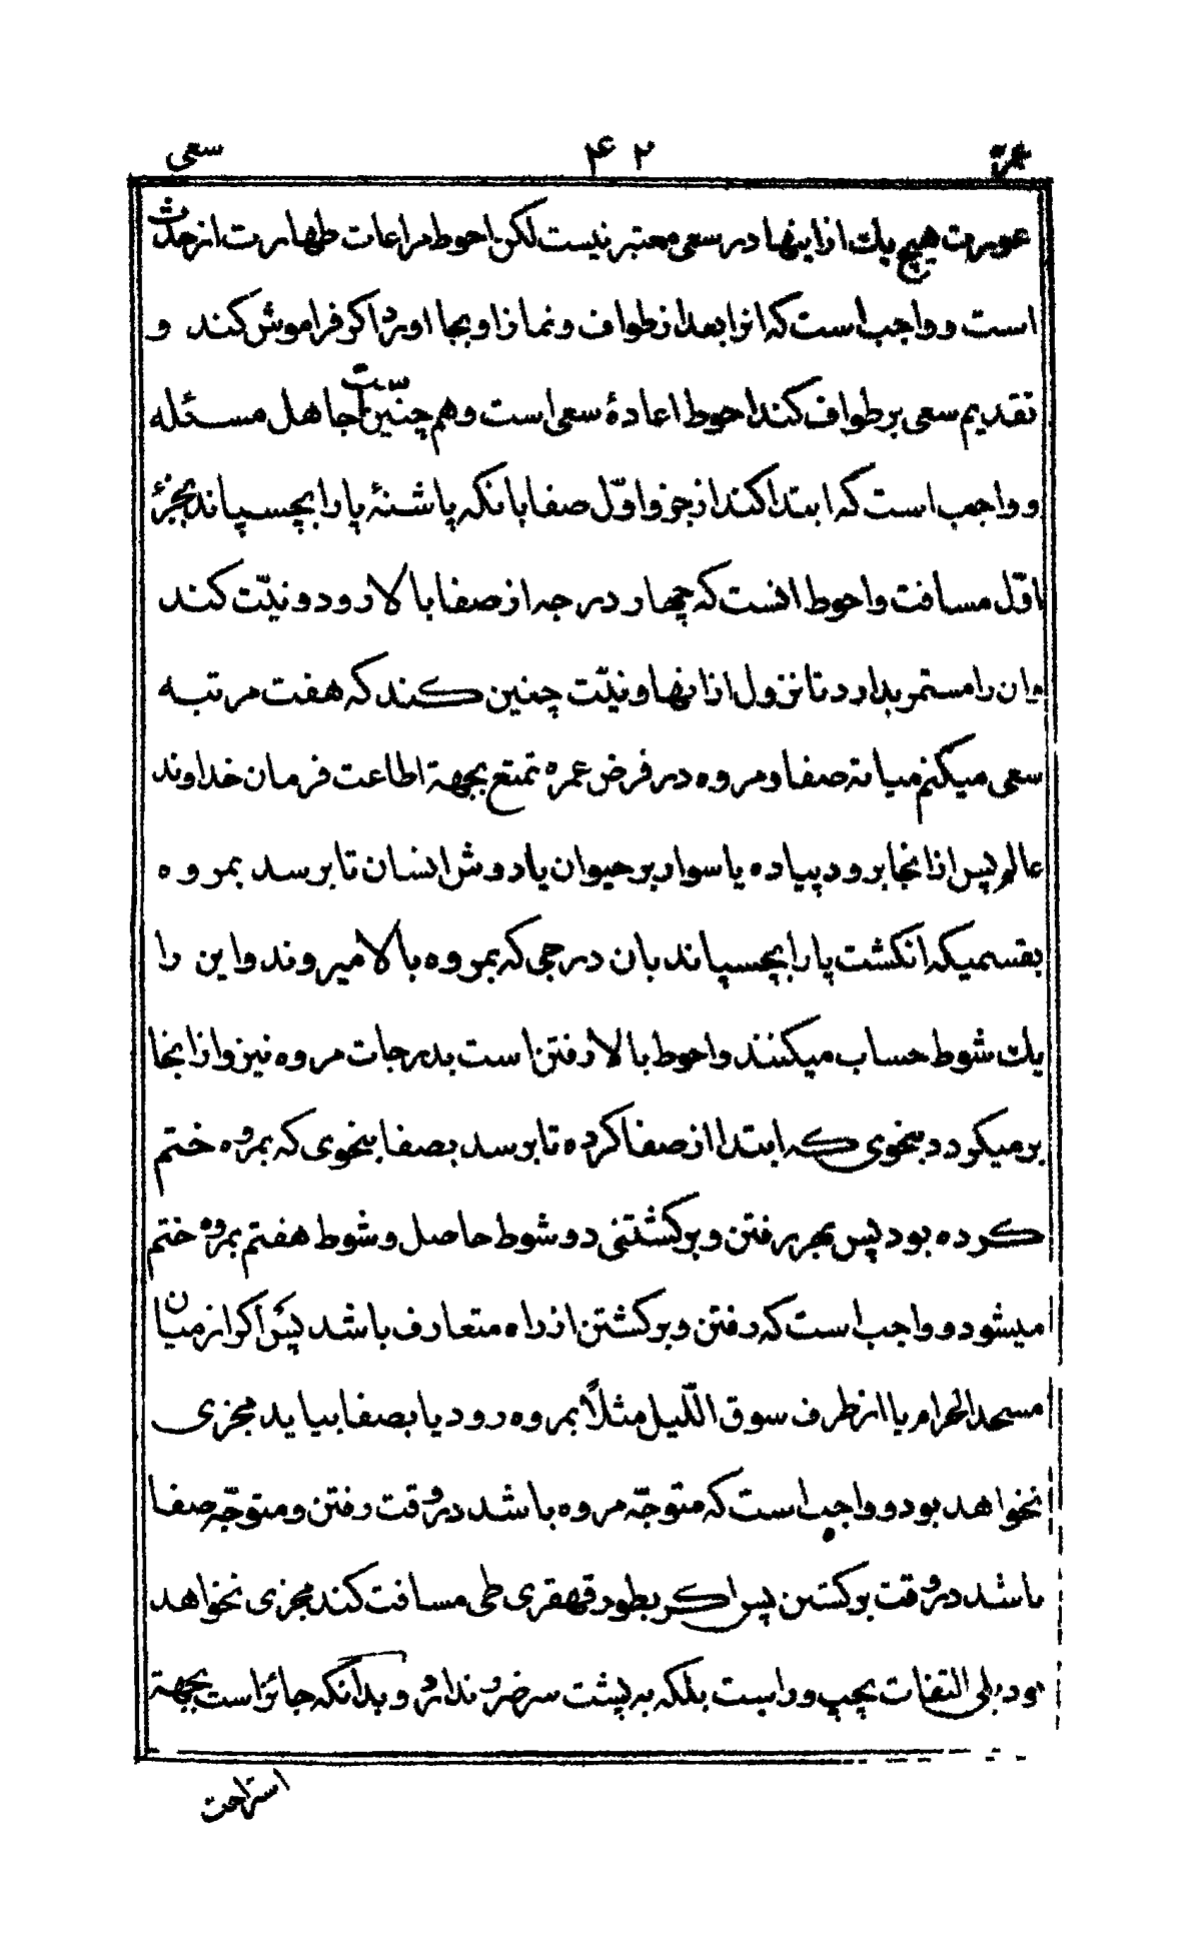 عمره ۴۲ سعی
عورت هیچ یك از اینها در سعی معتبر نیست لکن احوط مراعات طهارت از حدث
است و واجب است که انرا بعد از طواف و نماز او بجا اورد اکر فراموش کند و
تقدیم سعی بر طواف کند احوط اعادهٔ سعی است و هم چنین است جاهل مسئله
و واجب است که ابتدا کند از جزو اوّل صفا بانکه پاشنهٔ پا را بچسپاند بجزءِ
اوّل مسافت و احوط انست که چهار درجه از صفا بالا رود و نیّت کند
وان را مستمر بدارد تا نزول از انها و نیّت چنین کند که هفت مرتبه
سعی میکنم میانه صفا و مروه در فرض عمره تمتع بجهة اطاعت فرمان خداوند
عالم پس از انجا برود پیاده یا سوار بر حیوان یا دوش انسان تا برسد بمروه
بقسمیکه انکشت پا را بچسپاند بان درجی که بمروه بالا میروند و این را
یك شوط حساب میکنند و احوط بالا رفتن است بدرجات مروه نیز و از انجا
برمیکردد بنحوی که ابتدا از صفا کرده تا برسد بصفا بنحوی که بمروه ختم
کرده بود پس بهر رفتن و برکشتنی دو شوط حاصل و شوط هفتم بمروه ختم
میشود و واجب است که رفتن و برکشتن از راه متعارف باشد پس اکر از میان
مسجد الحرام یا از طرف سوق اللّیل مثلاً بمروه رود یا بصفا بیاید مجزی
نخواهد بود و واجب است که متوجّه مروه باشد در وقت رفتن و متوجّه صفا
باشد در وقت برکشتن پس اکر بطور قهقری طی مسافت کند مجزی نخواهد
بود بلی التفات بچپ و راست بلکه به پشت سر ضرر ندارد و بدانکه جائز است بجهة
استراحت